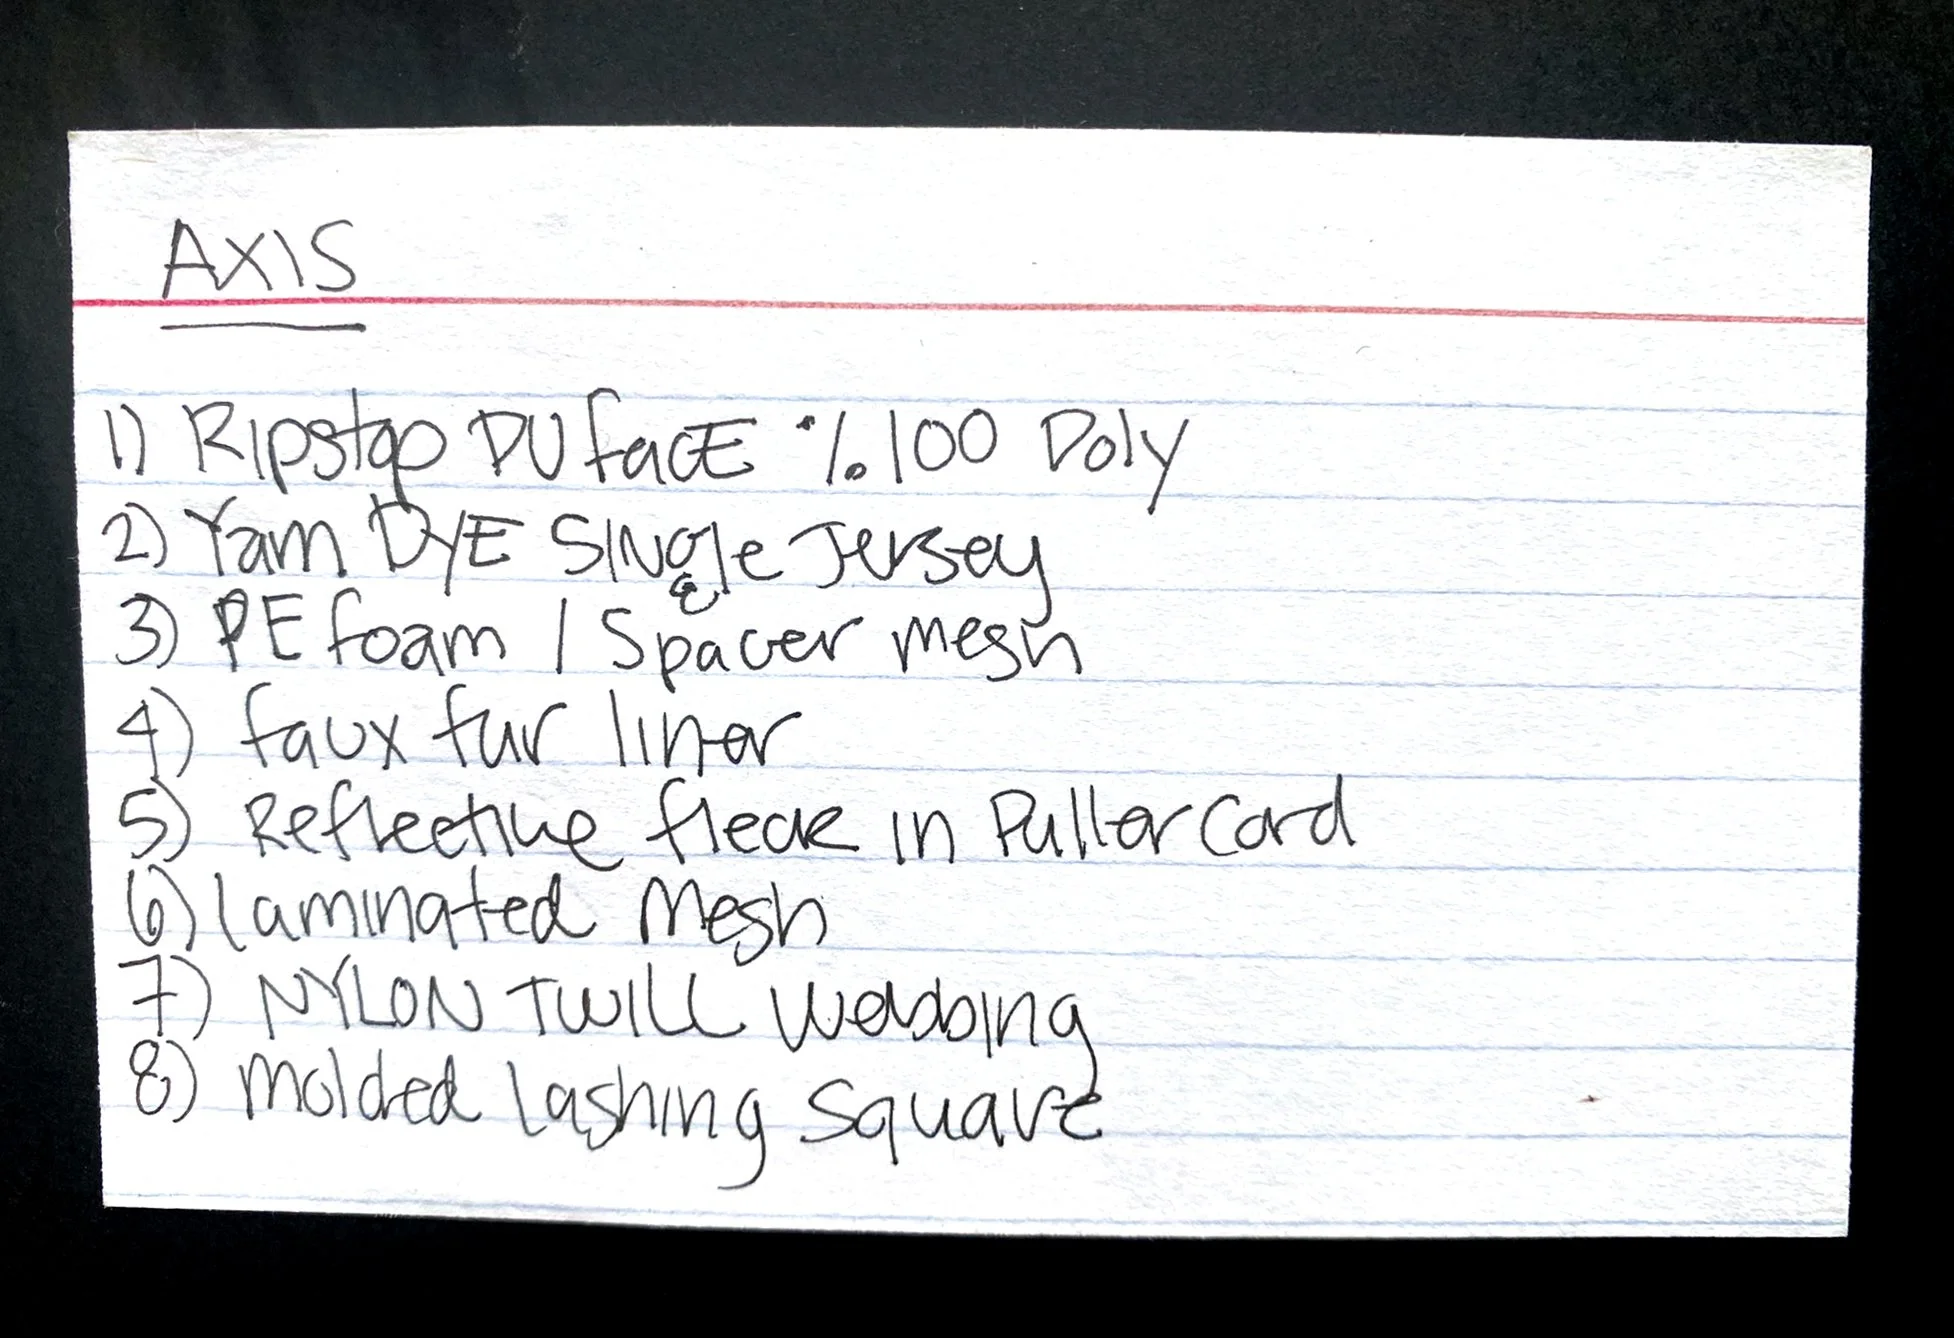 AXIS
1) Ripstop PU face %100 Poly
2) Yarn DYE Single Jersey
3) PE foam / Spacer mesh
4) faux fur liner
5) Reflective fleck in Puller Cord
6) laminated Mesh
7) NYLON TWILL Webbing
8) Molded lashing Square